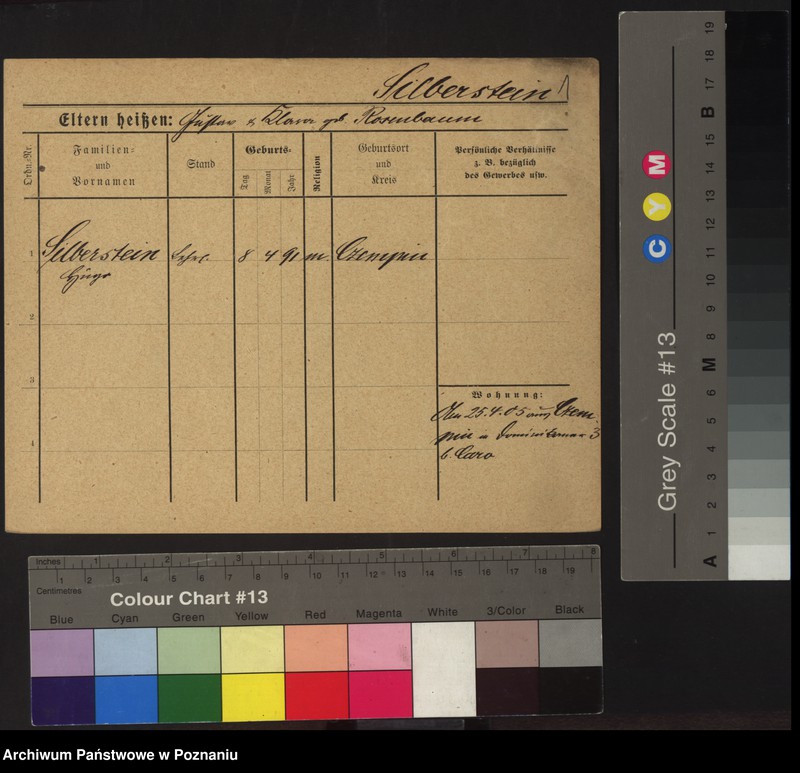 Silberstein
Eltern heißen: Gustav & Klara geb. Rosenbaum
Ordn.-Nr.
Familien-
und
Vornamen
Stand
Geburts-
Tag
Monat
Jahr
Religion
Geburtsort
und
Kreis
Persönliche Verhältnisse
z. B. bezüglich
des Gewerbes usw.
1 Silberstein Lehrl. 8 4 91 m. Czempin
Hugo
2
3
4
Wohnung:
25.4.05 aus Czem-
pin n Dominikaner 3
b. Caro
Inches 1 2 3 4 5 6 7 8
Centimetres 1 2 3 4 5 6 7 8 9 10 11 12 13 14 15 16 17 18 19
Colour Chart #13
Blue Cyan Green Yellow Red Magenta White 3/Color Black
Grey Scale #13
C Y M
A 1 2 3 4 5 6 M 8 9 10 11 12 13 14 15 B 17 18 19
Archiwum Państwowe w Poznaniu